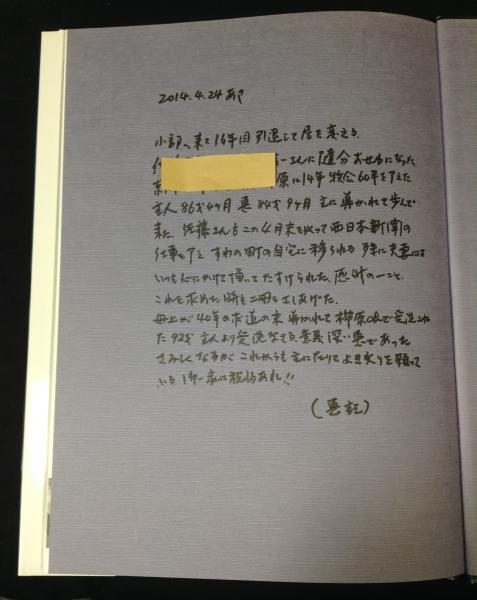 2014.4.24 あき
小部へ来て16年目 引退して居を変える
一さんに随分お世話になった
原に14年 牧会60年を了えた
主人86才4ヶ月 恵84才9ヶ月 主に導かれて歩んで
来た 佐藤さんもこの4月末を以って西日本新聞の
仕事を了え すわの町の自宅に移られる 殊に夫妻には
いつも心にかけて頂いてたすけられた
これを求めた時も二冊もさしあげた
母上が40年の求道の末 導かれて 原 で受洗された
92才 主人より受洗 意義深い
さみしくなるが これからも主にありてよき実りを願って
いる 一家に祝福あれ!!
(恵記)